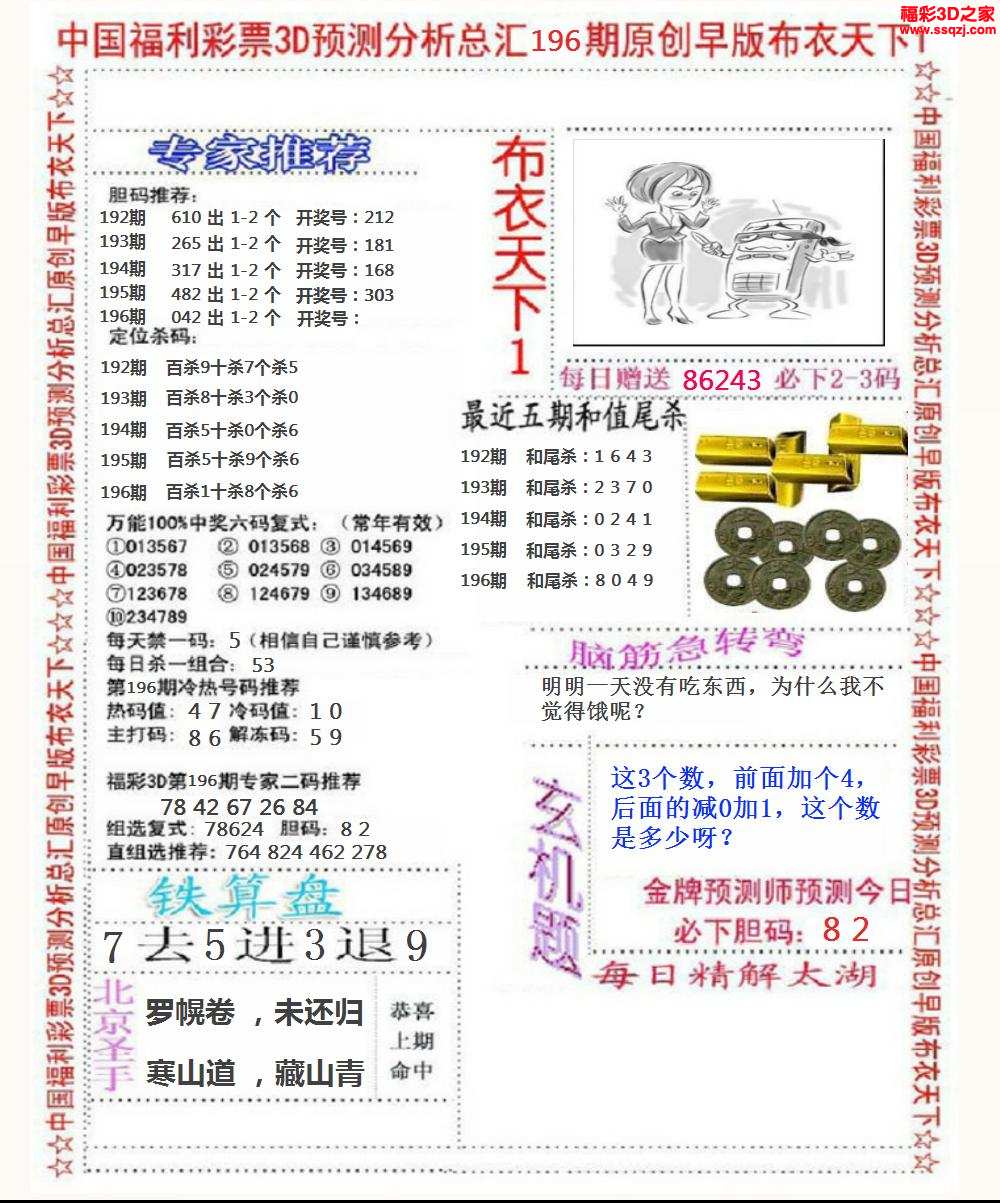 福彩3D之家
www.ssqzj.com
中国福利彩票3D预测分析总汇196期原创早版布衣天下1
☆☆中国福利彩票3D预测分析总汇原创早版布衣天下☆☆☆中国福利彩票3D预测分析总汇原创早版布衣天下☆☆
专家推荐
胆码推荐:
192期 610 出 1-2 个 开奖号：212
193期 265 出 1-2 个 开奖号：181
194期 317 出 1-2 个 开奖号：168
195期 482 出 1-2 个 开奖号：303
196期 042 出 1-2 个 开奖号：
定位杀码:
192期 百杀9十杀7个杀5
193期 百杀8十杀3个杀0
194期 百杀5十杀0个杀6
195期 百杀5十杀9个杀6
196期 百杀1十杀8个杀6
万能100%中奖六码复式: （常年有效）
①013567 ② 013568 ③ 014569
④023578 ⑤ 024579 ⑥ 034589
⑦123678 ⑧ 124679 ⑨ 134689
⑩234789
每天禁一码: 5（相信自己谨慎参考）
每日杀一组合: 53
第196期冷热号码推荐
热码值: 4 7 冷码值: 1 0
主打码: 8 6 解冻码: 5 9
福彩3D第196期专家二码推荐
78 42 67 26 84
组选复式: 78624 胆码: 8 2
直组选推荐: 764 824 462 278
铁算盘
7去5进3退9
北京圣手
罗幌卷 ，未还归
寒山道 ，藏山青
恭喜
上期
命中
布衣天下1
每日赠送 86243 必下2-3码
最近五期和值尾杀
192期 和尾杀：1 6 4 3
193期 和尾杀：2 3 7 0
194期 和尾杀：0 2 4 1
195期 和尾杀：0 3 2 9
196期 和尾杀：8 0 4 9
脑筋急转弯
明明一天没有吃东西，为什么我不
觉得饿呢？
玄机题
这3个数，前面加个4，
后面的减0加1，这个数
是多少呀？
金牌预测师预测今日
必下胆码: 8 2
每日精解太湖
☆☆中国福利彩票3D预测分析总汇原创早版布衣天下☆☆☆中国福利彩票3D预测分析总汇原创早版布衣天下☆☆